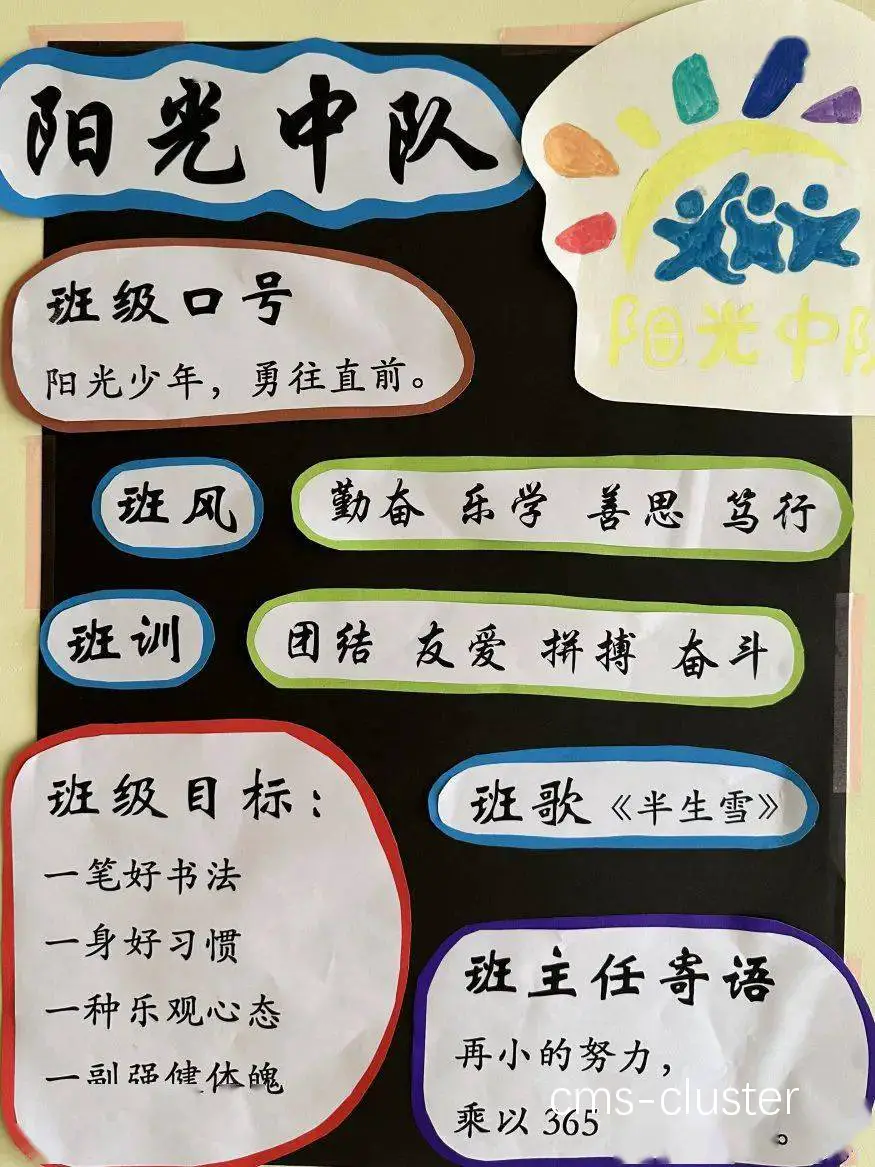 阳光中队
阳光中队
班级口号
阳光少年，勇往直前。
班风
勤奋 乐学 善思 笃行
班训
团结 友爱 拼搏 奋斗
班级目标：
一笔好书法
一身好习惯
一种乐观心态
一副强健体魄
班歌《半生雪》
班主任寄语
再小的努力，
乘以365
。
cms-cluster